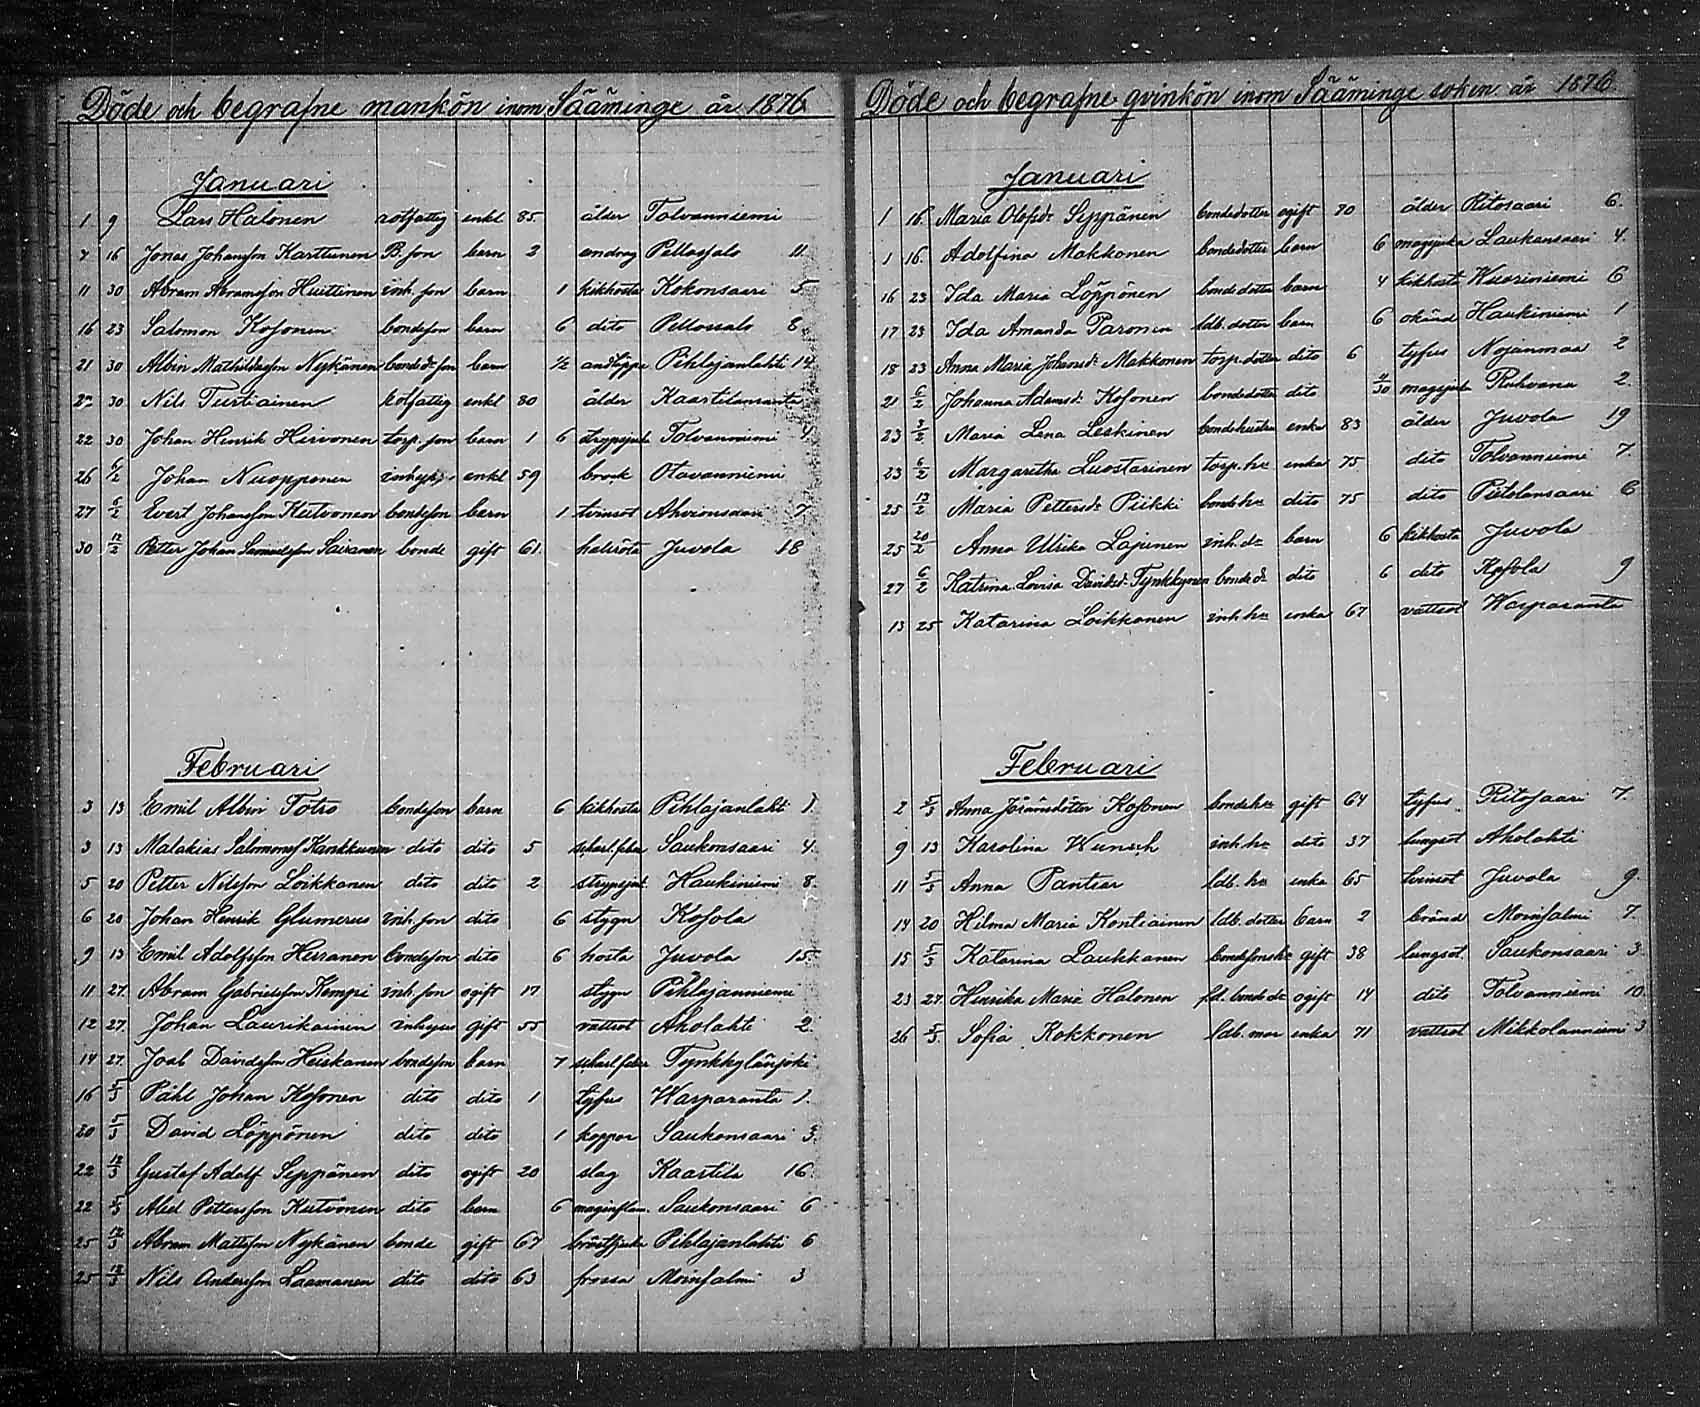 Döde och begrafne mankön inom Sääminge år 1876
Januari
1 9 Lars Halonen rotfattig enkl 85 ålder Tolvanniemi
7 16 Jonas Johansson Karttunen B. son barn 2 andrag Pellossalo 11
11 30 Abram Abramsson Huttinen inh. son barn 1 kikhosta Kokonsaari 5
16 23 Salomon Kosonen bondeson barn 6 dito Pellossalo 8
21 30 Albin Mathildasson Nykänen bondedr son barn 1/2 andtäppa Pihlajanlahti 14
22 30 Nils Turtiainen rotfattig enkl 80 ålder Kaartilanranta
22 30 Johan Henrik Hirvonen torp. son barn 1 6 strypsjuk Tolvanniemi
26 6/2 Johan Nuopponen inhys. enkl 59 brock Otavanniemi
27 6/2 Evert Johansson Kutvonen bondeson barn 1 tvinsot Ahvionsaari 7
30 12/2 Petter Johan Samuelsson Sairanen bonde gift 61 halsröta Juvola 18
Februari
3 13 Emil Albin Totro bondeson barn 6 kikhosta Pihlajanlahti 1.
3 13 Malakias Salomonss Kankkunen dito dito 5 scharl. feber Saukonsaari 4.
5 20 Petter Nilsson Loikkanen dito dito 2 strypsjuk. Haukiniemi 8.
6 20 Johan Henrik Glumerus inh. son dito 6 stygn Kosola
9 13 Emil Adolfsson Herranen bondeson dito 6 hosta Juvola 15.
11 27. Abram Gabrielsson Kempi inh. son ogift 17 stygn Pihlajanniemi
12 27. Johan Laurikainen inhyses gift 55 vattsot Aholahti 2.
14 27. Joel Davidsson Heiskanen bondeson barn 7 scharl. feber Tynkkylänjoki
16 5/3 Påhl Johan Kosonen dito dito 1 tyfus Warparanta 1.
20 5/3 David Löppönen dito dito 1 koppor Saukonsaari 3.
22 12/3 Gustaf Adolf Seppänen dito ogift 20 slag Kaartila 16
22 5/3 Abel Pettersson Kutvonen dito barn 6 maginflam. Saukonsaari 6
25 12/3 Abram Mattsson Nykänen bonde gift 67 bröstsjuka Pihlajanlahti 6
25 12/3 Nils Andersson Laamanen dito dito 63 frossa Moinsalmi 3
Döde och begrafne qvinkön inom Sääminge soken år 1876.
Januari
1 16. Maria Olofsdr Seppänen bondedotter ogift 70 ålder Ritosaari 6.
1 16. Adolfina Makkonen bondedotter barn 6 magsjuka Laukansaari 4.
16 23 Ida Maria Löppönen bondedotter barn 4 kikhosta Kuoriniemi 6
17 23 Ida Amanda Paronen ldb. dotter barn 6 okänd Haukiniemi 1
18 23 Anna Maria Johansdr Makkonen torp. dotter dito 6 tyfus Nojanmaa 2
21 6/2 Johanna Adamsdr Kosonen bondedotter dito 11/30 magsjuka Ruhvana 2.
23 3/2 Maria Lena Leskinen bondehustru enka 83 ålder Juvola 19
23 6/2 Margaretha Luostarinen torp. hu enka 75 dito Tolvanniemi 7.
25 12/2 Maria Pettersdr Piikki bonde hu dito 75 dito Pietolansaari 6
25 20/2 Anna Ulrika Lajunen inh. dr barn 6 kikhosta Juvola
27 6/2 Katrina Lovisa Davidsdr Tynkkynen bonde dr dito 6 dito Kosola 9
13 25 Katarina Loikkanen inh. hu enka 67 vattsot Warparanta
Februari
2 5/3 Anna Göransdotter Kosonen bonde hu gift 64 tyfus Ritosaari 7.
9 13 Karolina Wunsch inh. hu dito 37 lungsot Aholahti
11 5/3 Anna Pantsar ldb. hu enka 65 tvinsot Juvola 9.
14 20 Hilma Maria Kontiainen ldb. dotter barn 2 bränd Moinsalmi 7.
15 5/3 Katarina Laukkanen bondesons hu gift 38 lungsot Saukonsaari 3
23 27. Henrika Maria Halonen fd. bonde dr ogift 14 dito Tolvanniemi 10.
26 5/3. Sofia Kokkonen ldb. mor enka 71 vattsot Mikkolanniemi 3